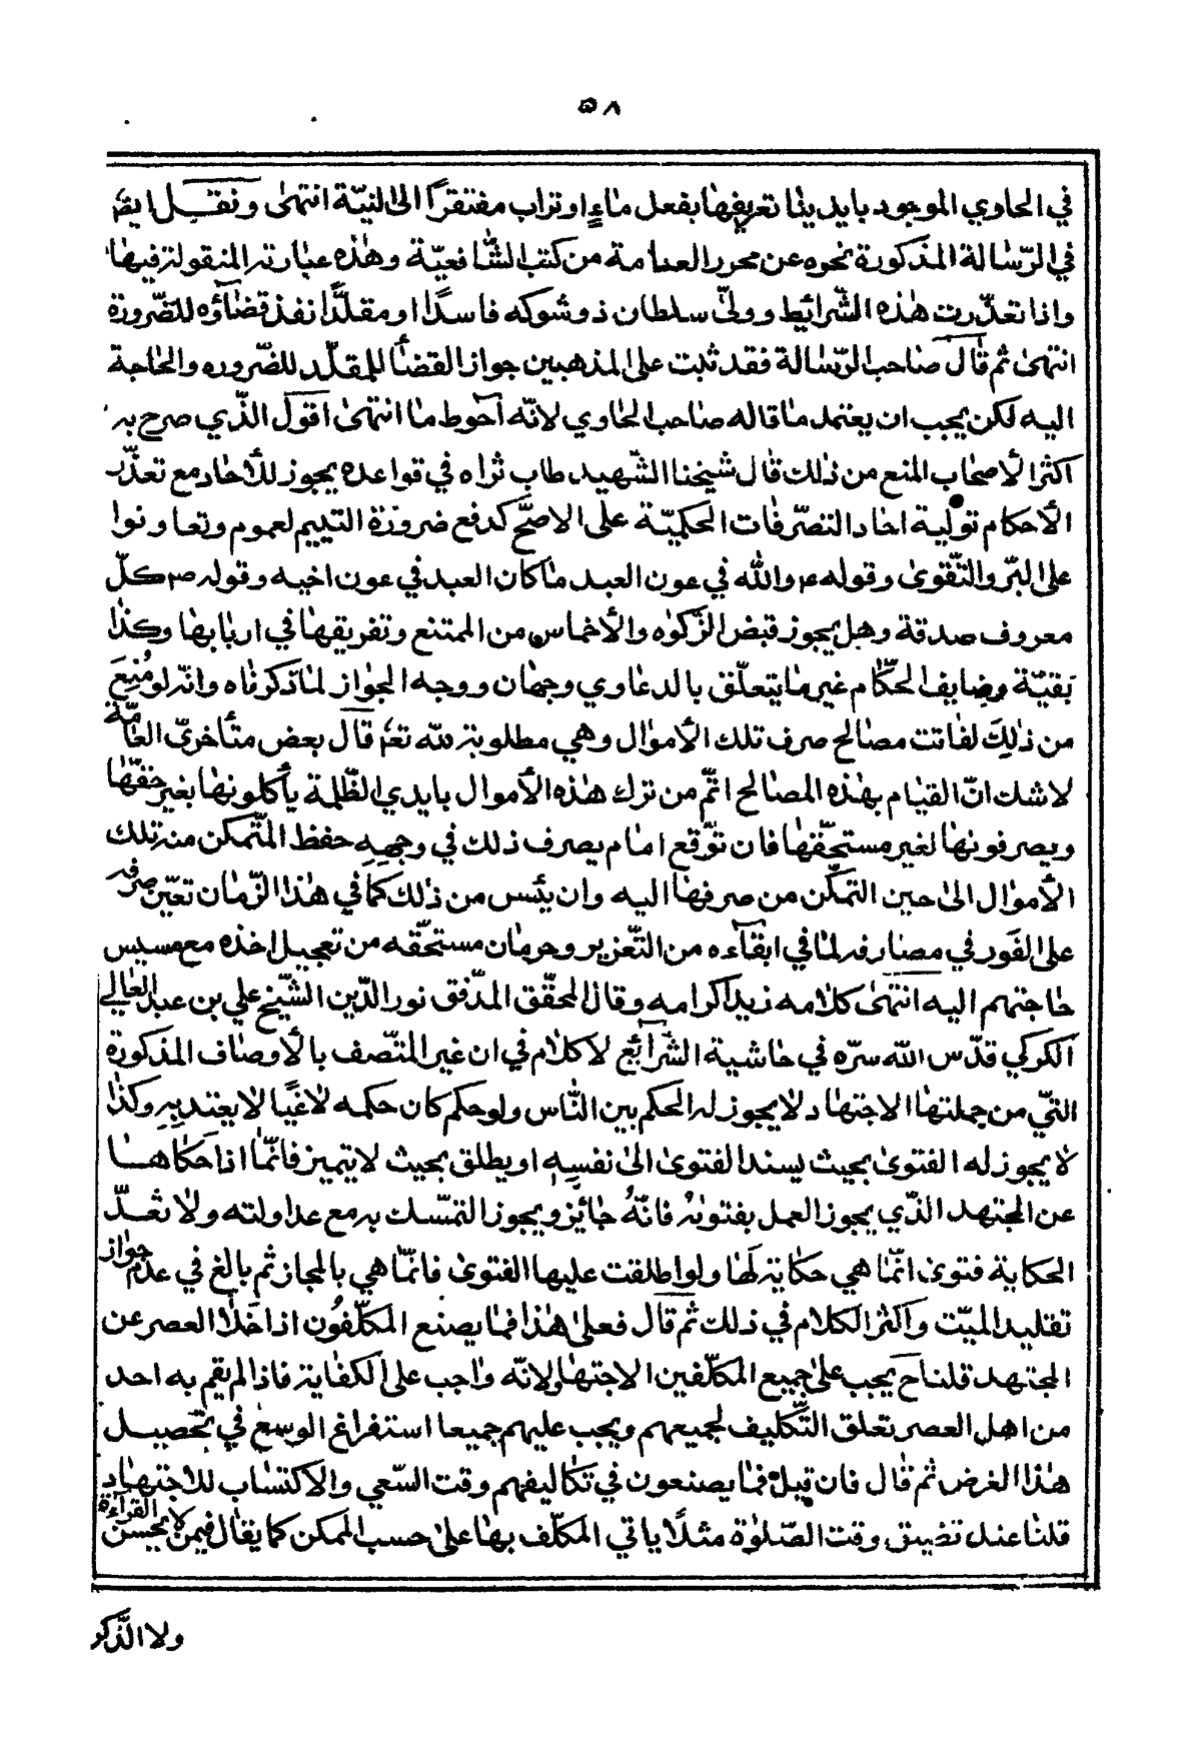 ٥٨
في الحاوي الموجود بايدينا تعريفها بفعل ماء او تراب مفتقرًا الى النيّة انتهى ونقل ايضًا
في الرّسالة المذكورة نحوه عن محرر العلامة من كتب الشّافعيّة وهذه عبارته المنقولة فيها
واذا تعذّرت هذه الشّرائط وولىّ سلطان ذو شوكه فاسدًا او مقلّدًا نفذ قضاؤه للضّرورة
انتهى ثم قال صاحب الرّسالة فقد ثبت على المذهبين جواز القضأ للمقلّد للضّروره والحاجة
اليه لكن يجب ان يعتمد ما قاله صاحب الحاوي لانّه احوط ما انتهى اقول الذّي صرح به
اكثر الأصحاب المنع من ذلك قال شيخنا الشّهيد طاب ثراه في قواعده يجوز للأحاد مع تعذّر
الأحكام تولية احاد التصرّفات الحكميّة على الاصحّ كدفع ضرورة التيتيم لعموم وتعاونوا
على البرّ والتّقوى وقوله ع والله في عون العبد ما كان العبد في عون اخيه وقوله ص كلّ
معروف صدقة وهل يجوز قبض الزّكوه والأخماس من الممتنع وتفريقها في اربابها وكذا
بقيّة وضايف الحكّام غير ما يتعلّق بالدعاوي وجهان ووجه الجواز لما ذكرناه وانّه لو مُنِعَ
من ذلِكَ لفاتت مصالح صرف تلك الأموال وهي مطلوبة لله تعم قال بعض متأخريّ العامّة
لا شك انّ القيام بهذه المصالح اتمّ من ترك هذه الأموال بايدي الظّلمة يأكلونها بغير حقّها
ويصرفونها لغير مستحقّها فان توّقع امام يصرف ذلك في وجههِ حفظ المتّمكن منه تلك
الأموال الى حين التمكّن من صرفها اليه وان يئس من ذلك كما في هذا الزّمان تعيّن صرفه
على الفَور في مصارفه لما في ابقآءه من التّغرير وحرمان مستحقّه من تعجيل اخذه مع مسيس
حاجتهم اليه انتهى كلامه زيد اكرامه وقال المحقّق المدّقق نور الدّين الشّيخ علي بن عبد العالي
الكركي قدّس الله سرّه في حاشية الشّرايع لا كلام في ان غير المتّصف بالأوصاف المذكورة
التّي من جملتها الاجتهاد لا يجوز له الحكم بين النّاس ولو حكم كان حكمه لاغيًا لا يعتد بهِ وكذا
لا يجوز له الفتوى بحيث يسند الفتوى الى نفسهِ او يطلق بحيث لا يتميز فانّما اذا حكاها
عن المجتهد الذّي يجوز العمل بفتوىه فانّهُ جائز ويجوز التمسّك به مع عدالته ولا تعّدّ
الحكاية فتوى انّما هي حكاية لَها ولو اطلقت عليها الفتوى فانّما هي بالمجاز ثم بالغ في عدم جواز
تقليد الميّت واكثر الكلام في ذلك ثم قال فعلى هذا فما يصنع المكلّفُون اذا خلا العصر عن
المجتهد قلنا ح يجب على جميع المكلّفين الاجتهاد لانّه واجب على الكفاية فاذا لم يقم به احد
من اهل العصر تعلق التّكليف لجميعهم ويجب عليهم جميعا استفراغ الوسع في تحصيل
هذا الغرض ثم قال فان قيل فما يصنعون في تكاليفهم وقت السّعي والاكتساب للاجتهاد
قلنا عند تضيق وقت الصّلوة مثلًا ياتي المكلّف بها على حسب الممكن كما يقال فيمن لا يحسن القرآءة
ولا الذّكر